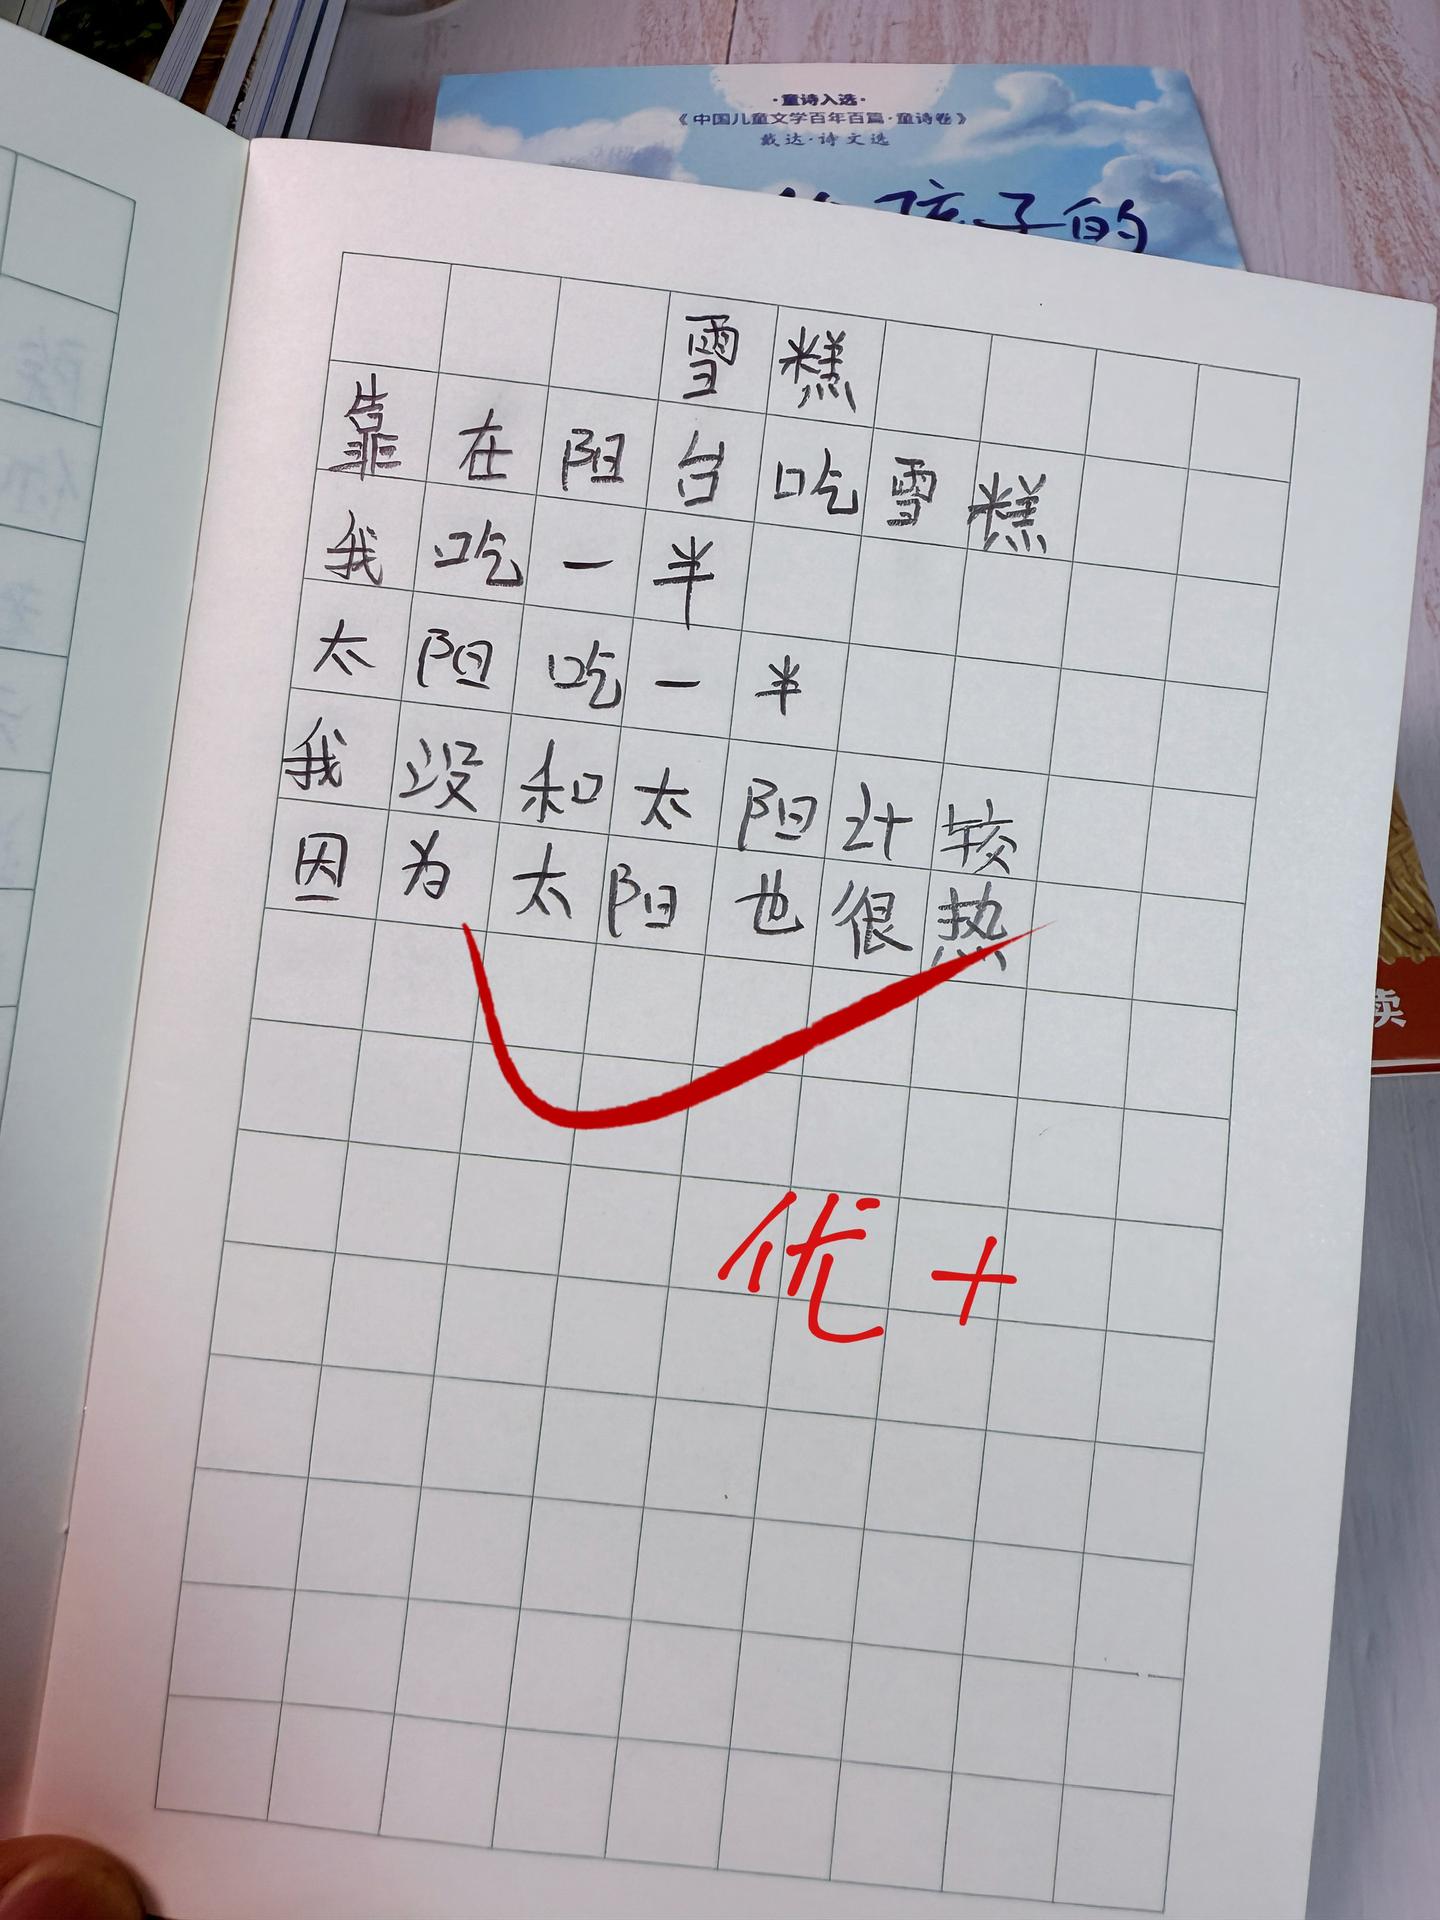 ·童诗入选·
《中国儿童文学百年百篇·童诗卷》
戴达·诗文选
孩子的
雪糕
靠在阳台吃雪糕
我吃一半
太阳吃一半
我没和太阳计较
因为太阳也很热
优+